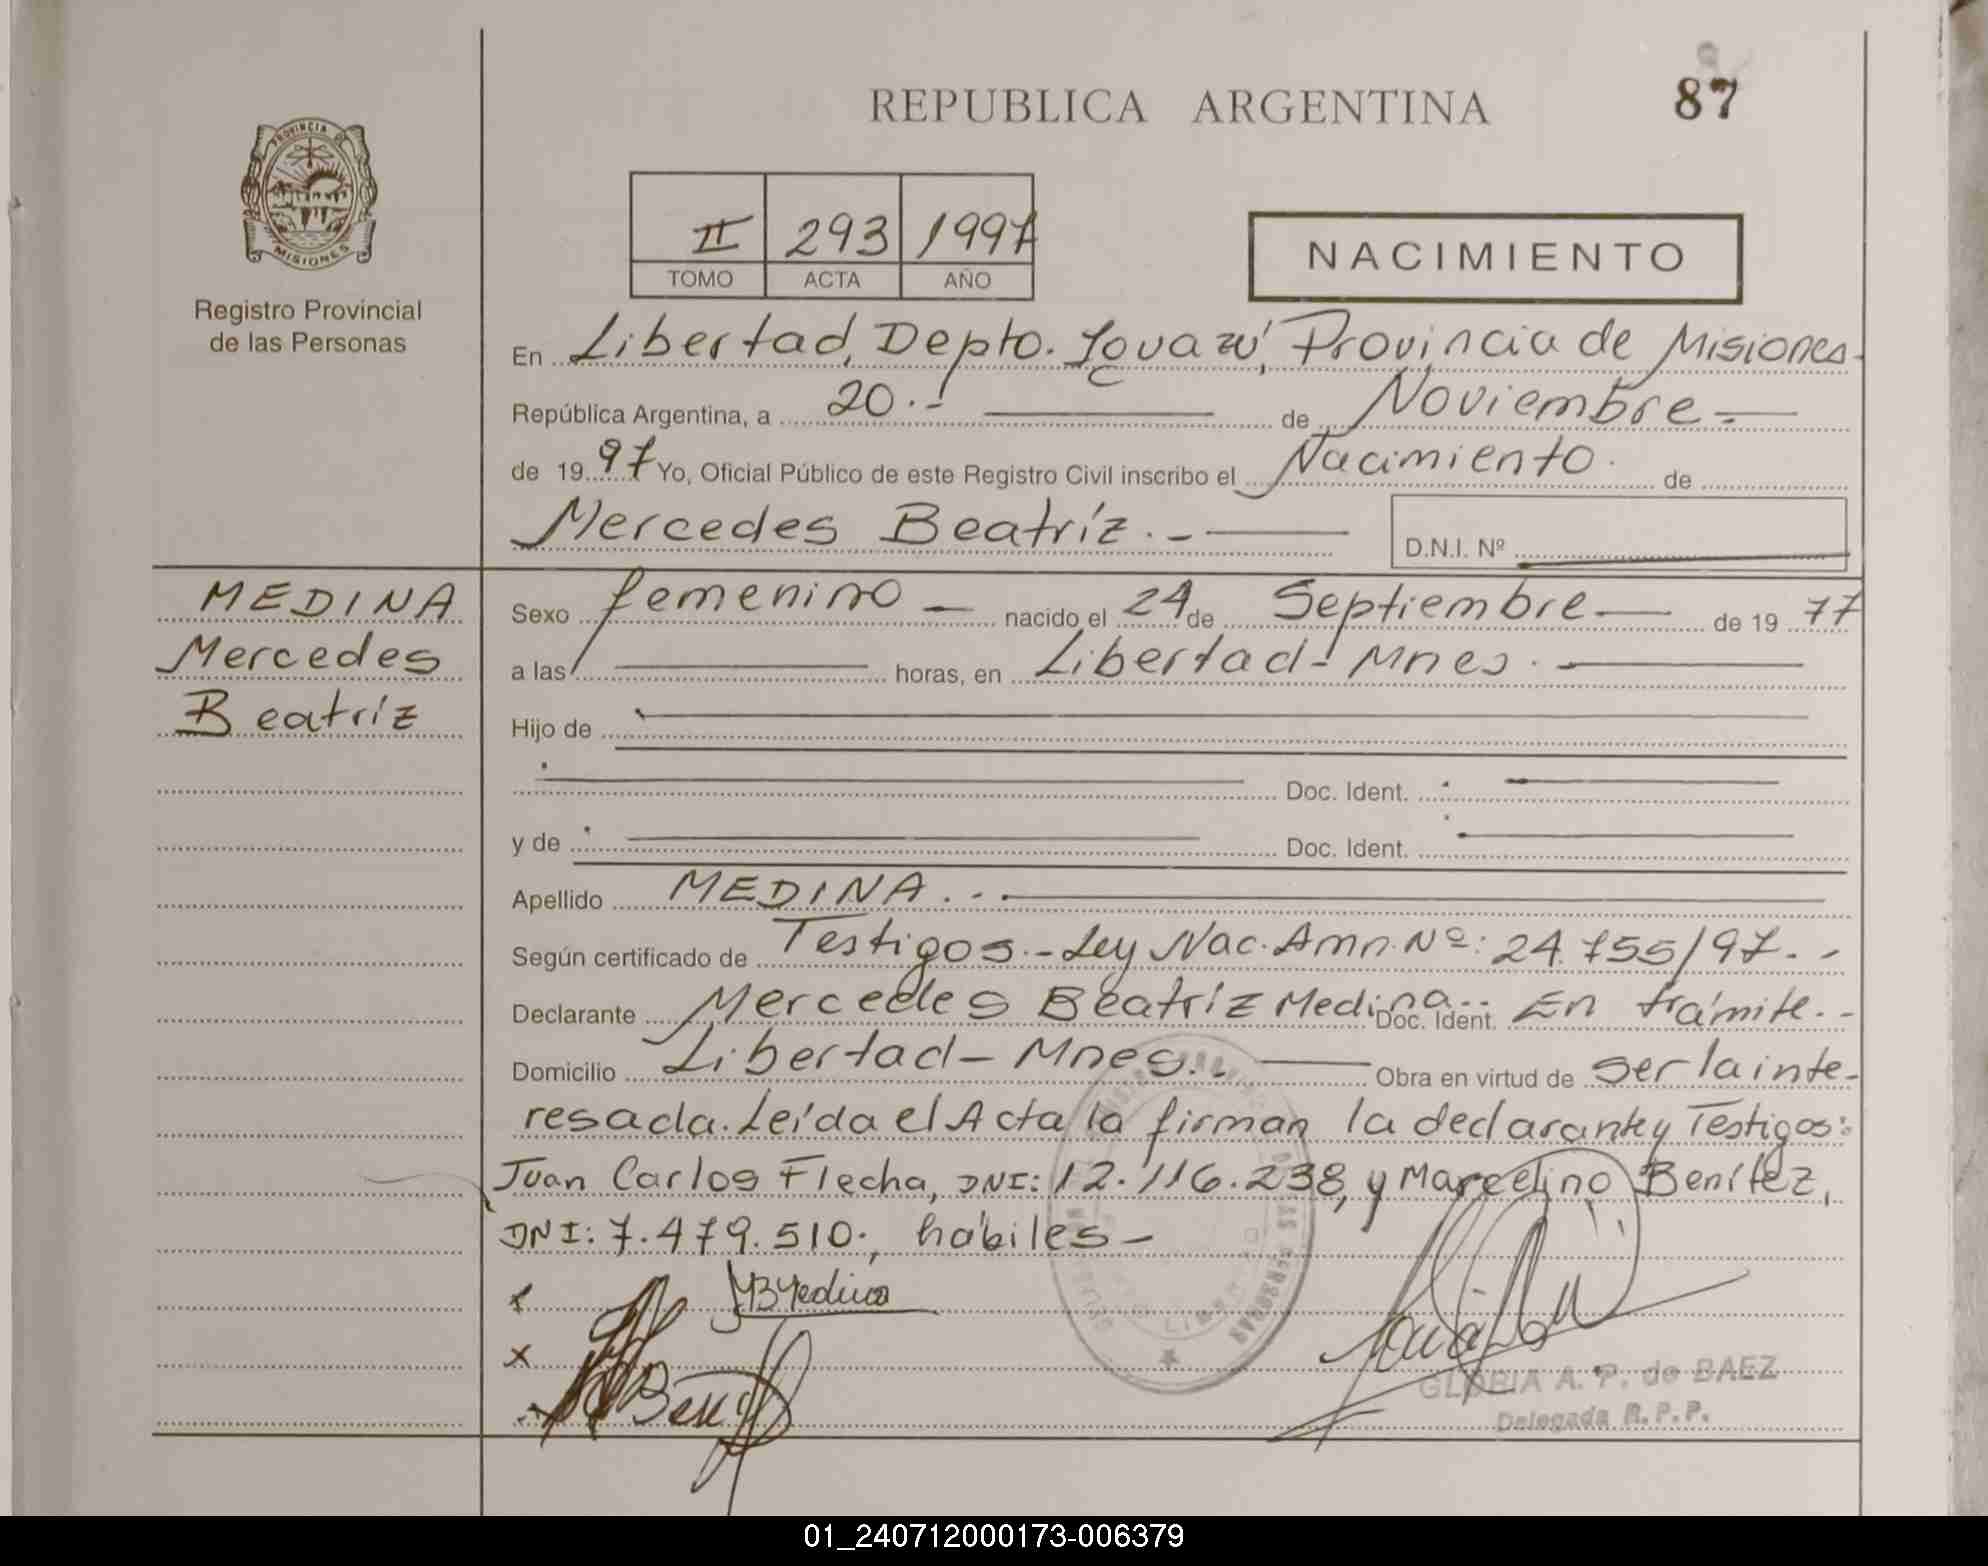 REPUBLICA ARGENTINA
87
PROVINCIA DE
MISIONES
Registro Provincial
de las Personas
II 293 1997
TOMO ACTA AÑO
NACIMIENTO
En Libertad, Depto. Iguazú, Provincia de Misiones-
República Argentina, a 20.- de Noviembre -
de 1997 Yo, Oficial Público de este Registro Civil inscribo el Nacimiento. de
Mercedes Beatríz.-
D.N.I. Nº
MEDINA
Mercedes
Beatríz
Sexo femenino - nacido el 24 de Septiembre de 1977
a las horas, en Libertad - Mnes.
Hijo de
Doc. Ident.
y de Doc. Ident.
Apellido MEDINA.-.
Según certificado de Testigos.-Ley Nac. Amn. Nº: 24.755/97.-
Declarante Mercedes Beatríz Medina.. Doc. Ident. En trámite.-
Domicilio Libertad - Mnes.. Obra en virtud de ser la inte-
resada. Leída el Acta la firman la declarante y Testigos:
Juan Carlos Flecha, DNI: 12.116.238, y Marcelino Benítez,
DNI: 7.479.510., hábiles -
x MBMedina
x
GLORIA A. P. de BAEZ
Delegada R.P.P.
01_240712000173-006379